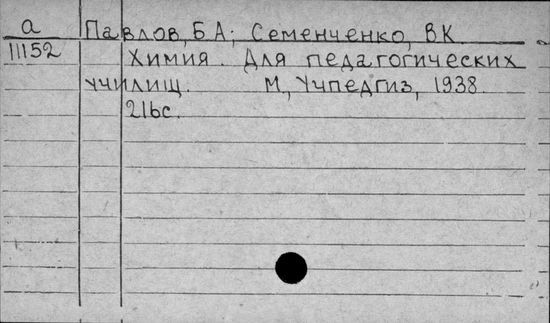 а Павлов, Б А; Семенченко, В К.
11152 Химия. Для педагогических
училищ. М., Учпедгиз, 1938.
216с.